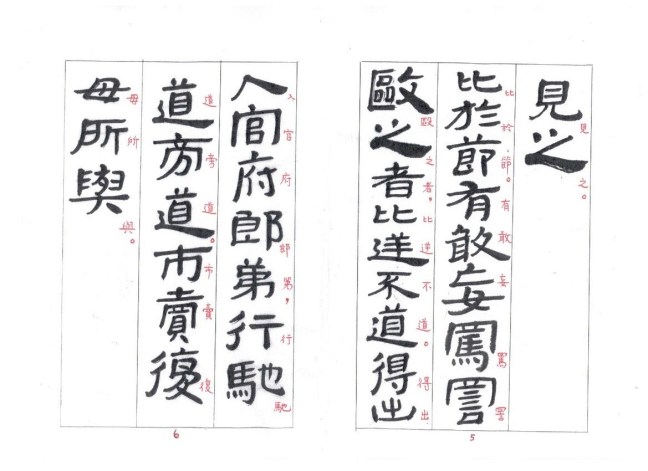 見之
見之。
比於節有敢妄罵詈
比於節。有敢妄罵詈
毆之者比逆不道得出
毆之者，比逆不道。得出
5
入官府郎第行馳
入官府郎第，行馳
道旁道市賣復
道旁道。市賣復
毋所與
毋所與。
6